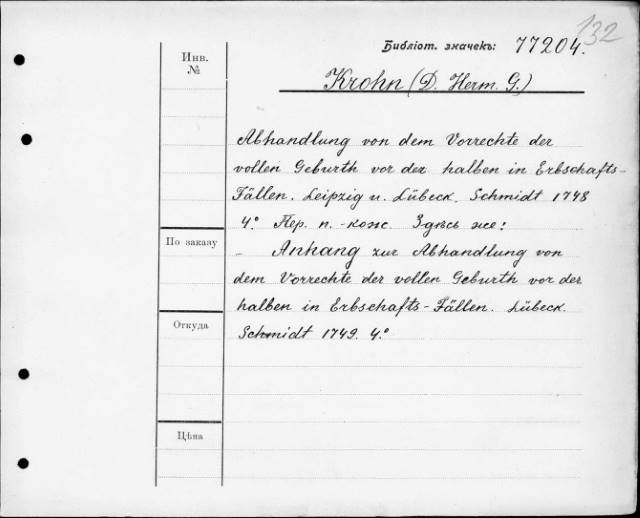 132
Библіот. значекъ: 77204.
Инв.
№
Krohn (D. Herm. G.)
Abhandlung von dem Vorrechte der
vollen Geburth vor der halben in Erbschafts-
Fällen. Leipzig u. Lübeck. Schmidt 1748
4.° Пер. п.-кож. Здѣсь же:
По заказу
- Anhang zur Abhandlung von
dem Vorrechte der vollen Geburth vor der
halben in Erbschafts-Fällen. Lübeck.
Откуда
Schmidt 1749. 4.°
Цѣна